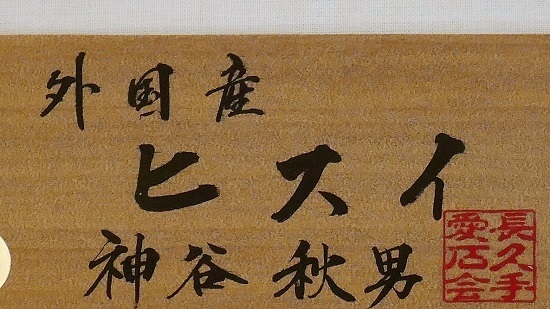 外国産
ヒスイ
神谷秋男
長久手
愛石会